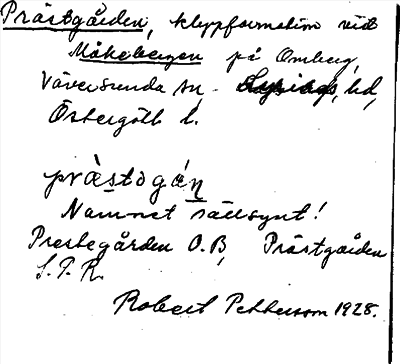 Prästgården, klippformation vid
Måkebergen på Omberg,
Väversunda sn. Lysings hd,
Östergötl l.
præ̀stogáṇ
Namnet sällsynt!
Prestegården O.B, Prästgården
S.T.R.
Robert Pettersson 1928.